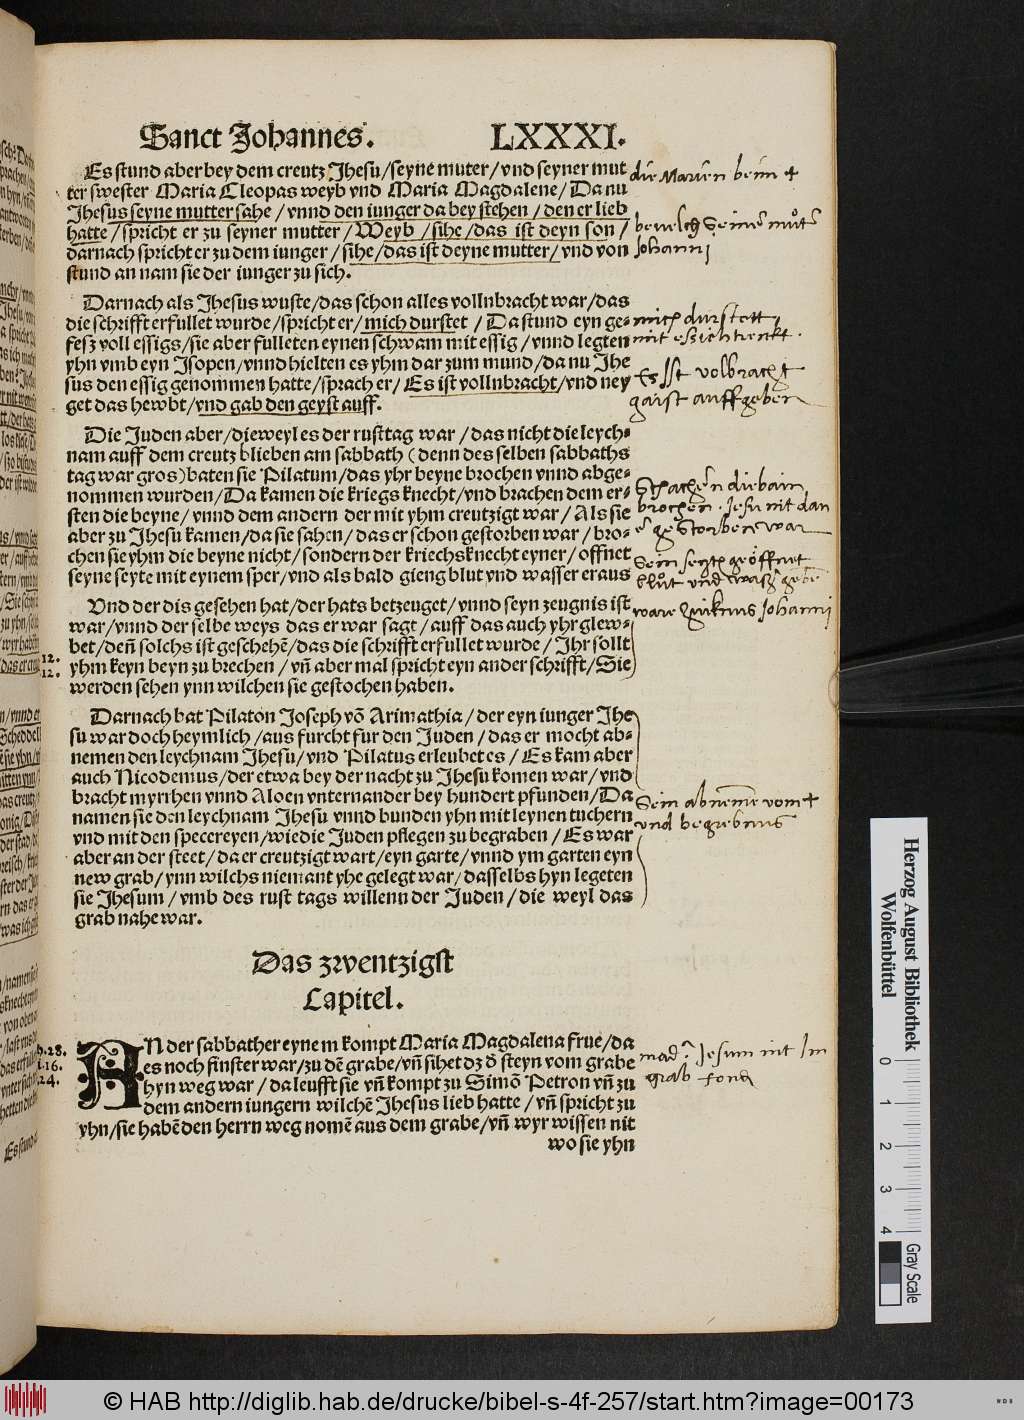 Sanct Johannes. LXXXI.
Es stund aber bey dem creutz Jhesu/seyne muter/vnd seyner mut
ter swester Maria Cleopas weyb vnd Maria Magdalene/Da nu
Jhesus seyne mutter sahe/vnnd den iunger da bey stehen/den er lieb
hatte/spricht er zu seyner mutter/Weyb/sihe/das ist deyn son/
darnach spricht er zu dem iunger/sihe/das ist deyne mutter/vnd von
stund an nam sie der iunger zu sich.
die Marien beim +
Johanni
Darnach als Jhesus wuste/das schon alles vollnbracht war/das
die schrifft erfullet wurde/spricht er/mich durstet/Da stund eyn ge⸗
fesz voll essigs/sie aber fulleten eynen schwam mit essig/vnnd legten
yhn vmb eyn Isopen/vnnd hielten es yhm dar zum mund/da nu Jhe
sus den essig genommen hatte/sprach er/Es ist vollnbracht/vnd ney
get das hewbt/vnd gab den geyst auff.
Es Ist volbracht
gaist auffgeben
Die Juden aber/dieweyl es der rusttag war/das nicht die leych⸗
nam auff dem creutz blieben am sabbath (denn des selben sabbaths
tag war gros) baten sie Pilatum/das yhr beyne brochen vnnd abge⸗
nommen wurden/Da kamen die kriegs knecht/vnd brachen dem er⸗
sten die beyne/vnnd dem andern der mit yhm creutzigt war/Als sie
aber zu Jhesu kamen/da sie sahen/das er schon gestorben war/bro⸗
chen sie yhm die beyne nicht/sondern der kriechsknecht eyner/offnet
seyne seyte mit eynem sper/vnd als bald gieng blut vnd wasser eraus
Schachern die bain
brochen. Jesu nit dan
er gestorben war
Vnd der dis gesehen hat/der hats betzeuget/vnnd seyn zeugnis ist
war/vnnd der selbe weys das er war sagt/auff das auch yhr glew⸗
bet/deñ solchs ist geschehẽ/das die schrifft erfullet wurde/Jhr sollt
yhm keyn beyn zu brechen/vñ aber mal spricht eyn ander schrifft/Sie
werden sehen ynn wilchen sie gestochen haben.
12.
12.
Darnach bat Pilaton Joseph võ Arimathia/der eyn iunger Jhe
su war doch heymlich/aus furcht fur den Juden/das er mocht ab⸗
nemen den leychnam Jhesu/vnd Pilatus erleubet es/Es kam aber
auch Nicodemus/der etwa bey der nacht zu Jhesu komen war/vnd
bracht myrrhen vnnd Aloen vnternander bey hundert pfunden/Da
namen sie den leychnam Jhesu vnnd bunden yhn mit leynen tuchern
vnd mit den specereyen/wie die Juden pflegen zu begraben/Es war
aber an der steet/da er creutzigt wart/eyn garte/vnnd ym garten eyn
new grab/ynn wilchs niemant yhe gelegt war/dasselbs hyn legeten
sie Jhesum/vmb des rust tags willenn der Juden/die weyl das
grab nahe war.
Sein abnemen vom +
vnd begrebnus
Das zwentzigst
Capitel.
AN der sabbather eynem kompt Maria Magdalena frue/da
es noch finster war/zu dẽ grabe/vñ sihet dz d̄ steyn vom grabe
hyn weg war/da leufft sie vñ kompt zu Simõ Petron vñ zu
dem andern iungern wilchẽ Jhesus lieb hatte/vñ spricht zu
yhn/sie habẽ den herrn weg nomẽ aus dem grabe/vñ wyr wissen nit
wo sie yhn
Jesum nit Im
grab
Herzog August Bibliothek
Wolfenbüttel
0 1 2 3 4
Gray Scale
© HAB http://diglib.hab.de/drucke/bibel-s-4f-257/start.htm?image=00173